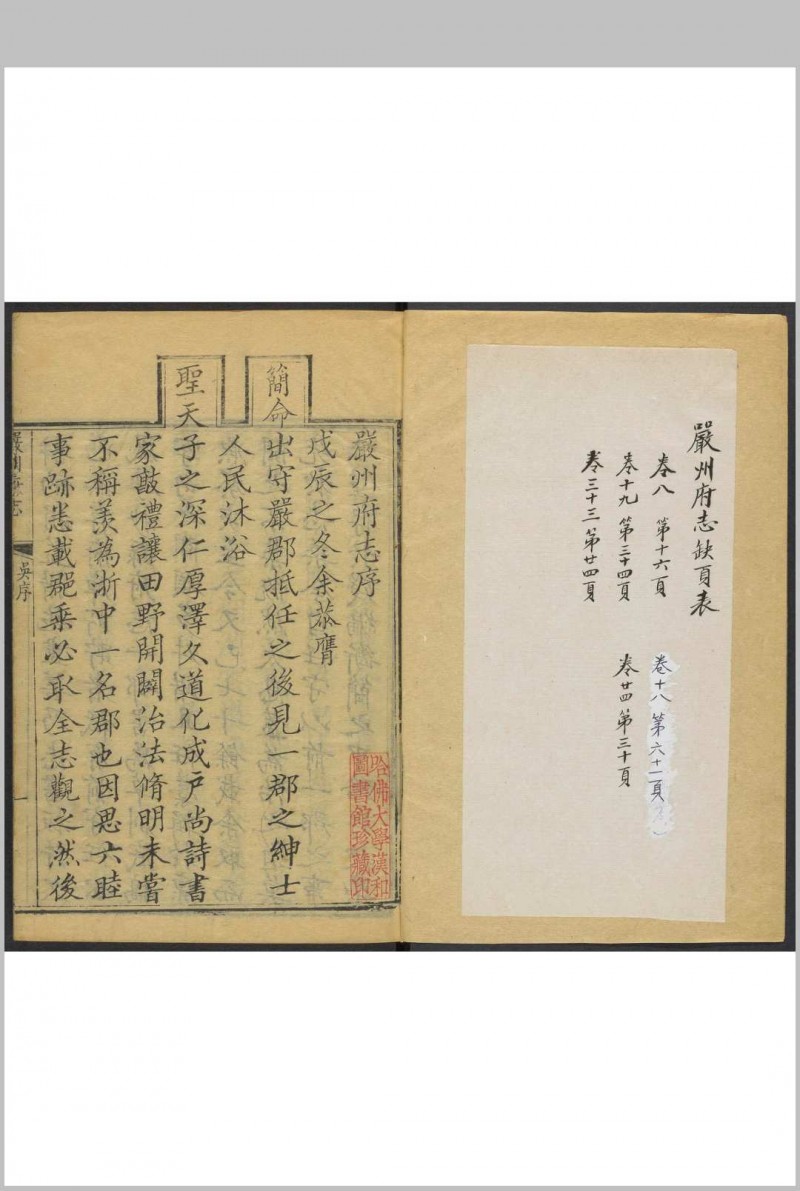 嚴州府志缺頁表
卷八 第十六頁
卷十八 第六十一頁
卷十九 第三十四頁
卷廿四 第三十頁
卷三十三 第廿四頁
嚴州府志序
戊辰之冬余恭膺
簡命出守嚴郡抵任之後見一郡之紳士
人民沐浴
聖天子之深仁厚澤久道化成戶尚詩書
家敲禮讓田野開闢治法脩明未嘗
不稱羨為浙中一名郡也因思六睦
事跡悉載郡乘必取全志觀之然後
嚴州府志
吳序
一
哈佛大學漢和
圖書館珍藏印